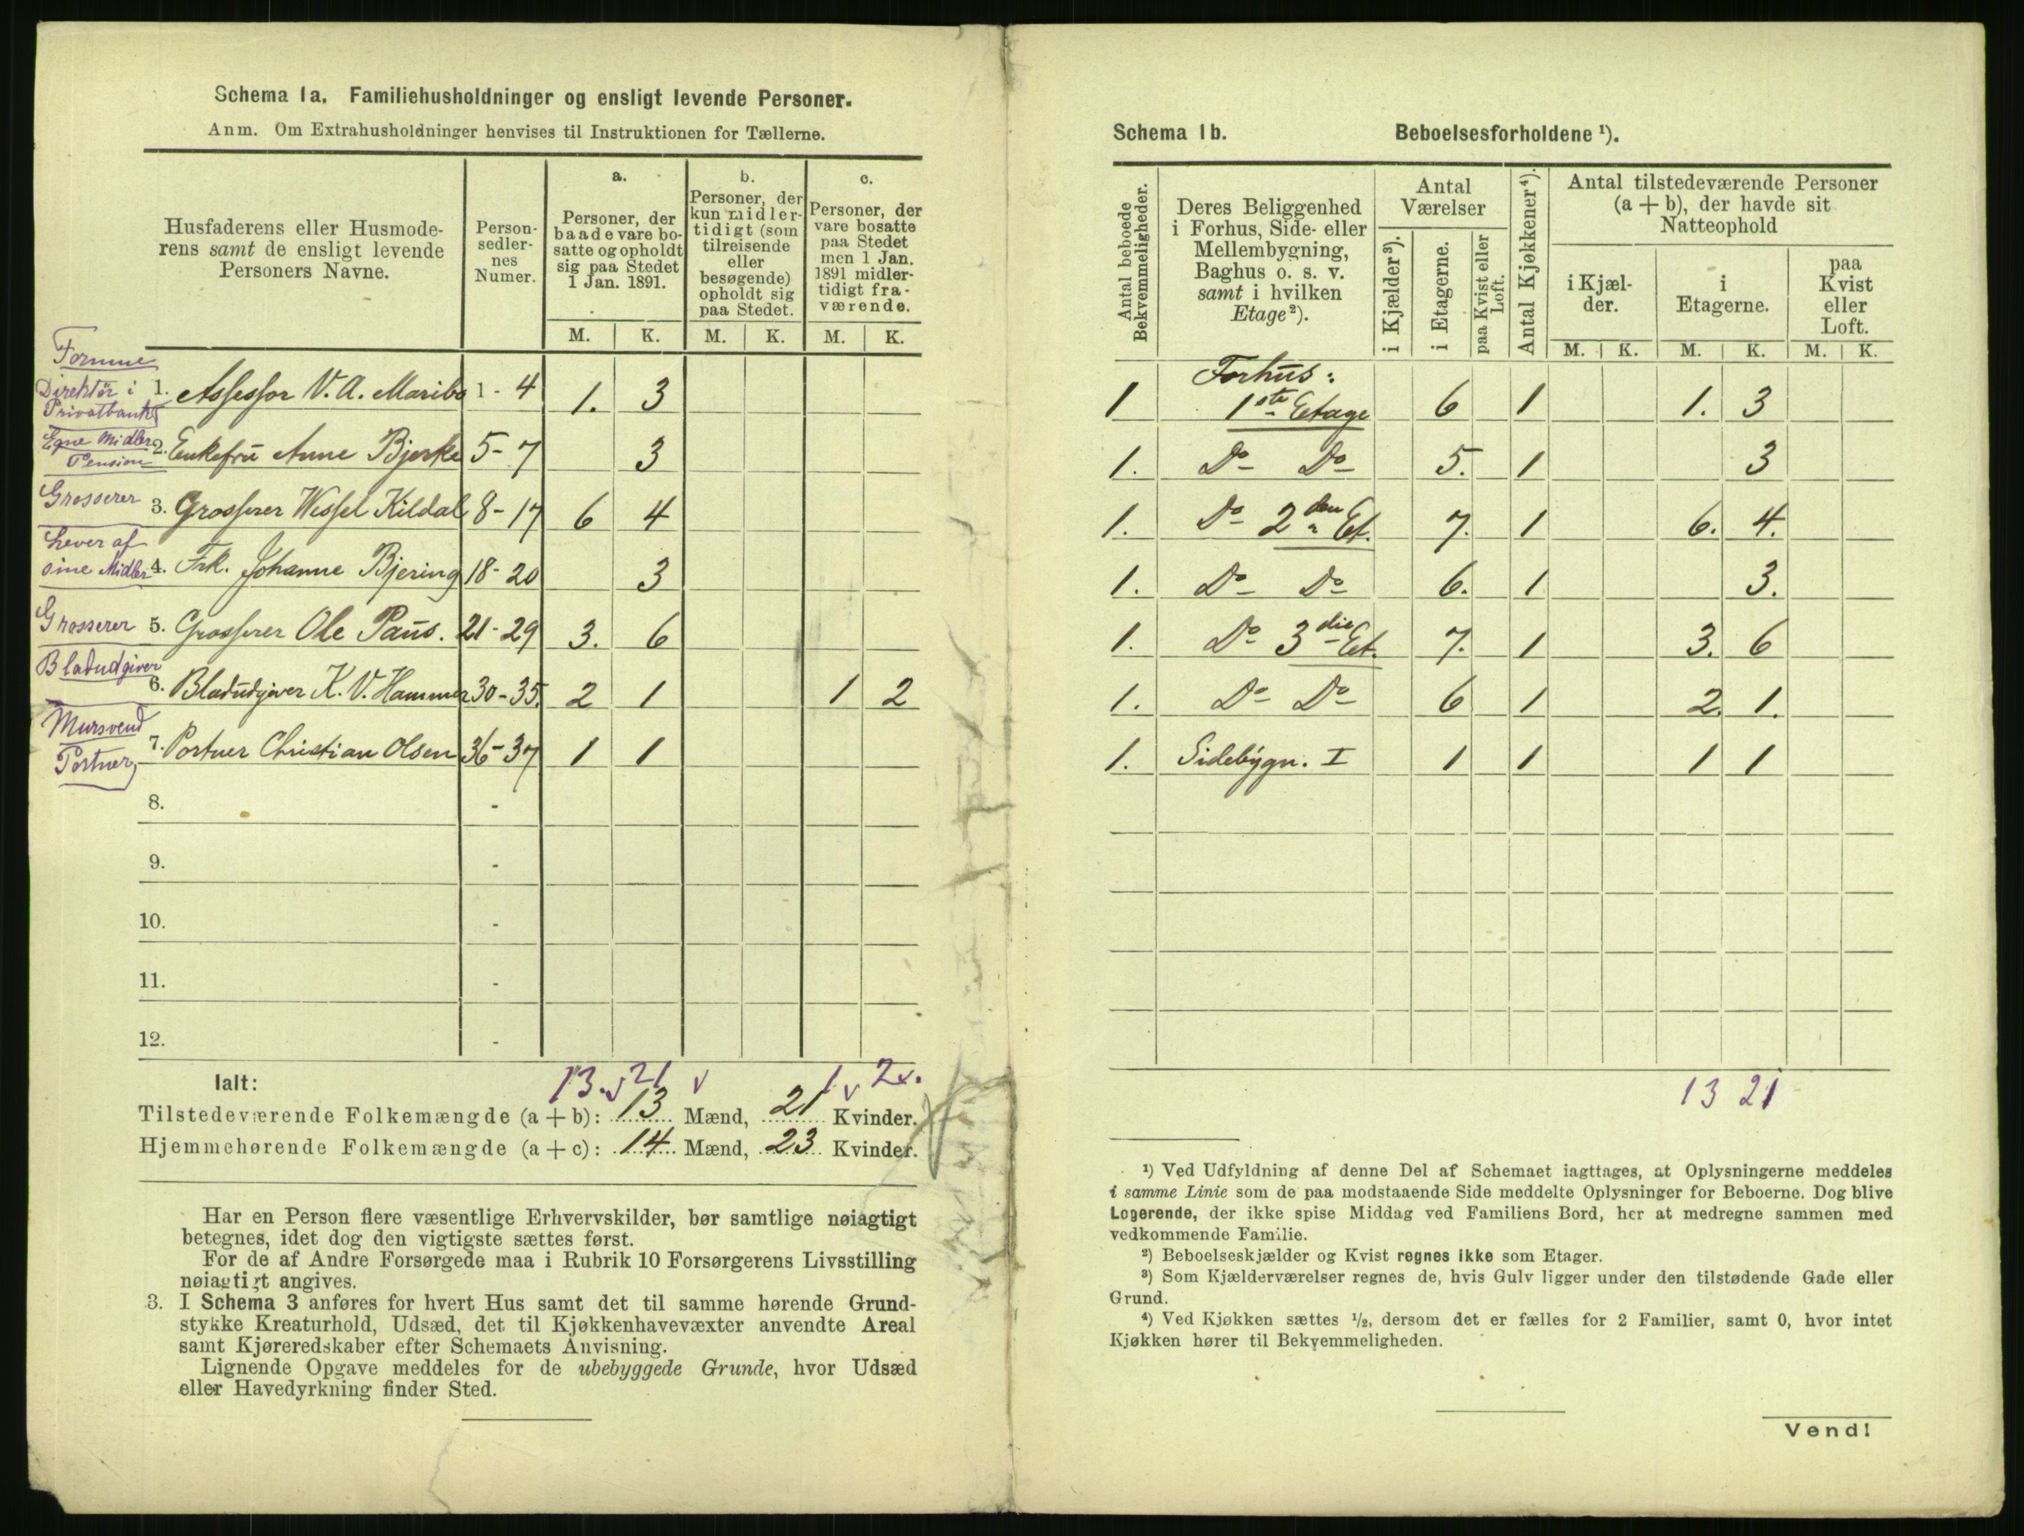 Schema 1a. Familiehusholdninger og ensligt levende Personer.
Anm. Om Extrahusholdninger henvises til Instruktionen for Tællerne.
Husfaderens eller Husmode-
rens samt de ensligt levende
Personers Navne.
Person-
sedler-
nes
Numer.
a.
Personer, der
baade vare bo-
satte og opholdt
sig paa Stedet
1 Jan. 1891.
b.
Personer, der
kun midler-
tidigt (som
tilreisende
eller
besøgende)
opholdt sig
paa Stedet.
c.
Personer, der
vare bosatte
paa Stedet
men 1 Jan.
1891 midler-
tidigt fra-
værende.
M. K. M. K. M. K.
Direktör i
Privatbank
1. Assessor V. A. Maribo 1 - 4 1. 3
Egne Midler
Pension
2. Enkefru Anne Bjerke 5 - 7 3
Grosserer
3. Grosserer Wessel Kildal 8 - 17 6 4
Lever af
sine Midler
4. Frk. Johanne Bjering 18 - 20 3
Grosserer
5. Grosserer Ole Paus. 21 - 29 3. 6
Bladudgiver
6. Bladudgiver K. V. Hammer 30 - 35. 2 1 1 2
Mursvend
Portner
7. Portner Christian Olsen 36 - 37 1 1
8. -
9. -
10. -
11. -
12. -
13. 21 1 2
Ialt:
Tilstedeværende Folkemængde (a + b): 13 Mænd, 21 Kvinder.
Hjemmehørende Folkemængde (a + c): 14 Mænd, 23 Kvinder.
Har en Person flere væsentlige Erhvervskilder, bør samtlige nøiagtigt
betegnes, idet dog den vigtigste sættes først.
For de af Andre Forsørgede maa i Rubrik 10 Forsørgerens Livsstilling
nøiagtigt angives.
3. I Schema 3 anføres for hvert Hus samt det til samme hørende Grund-
stykke Kreaturhold, Udsæd, det til Kjøkkenhavevæxter anvendte Areal
samt Kjøreredskaber efter Schemaets Anvisning.
Lignende Opgave meddeles for de ubebyggede Grunde, hvor Udsæd
eller Havedyrkning finder Sted.
Schema 1b. Beboelsesforholdene ¹).
Antal beboede
Bekvemmeligheder.
Deres Beliggenhed
i Forhus, Side- eller
Mellembygning,
Baghus o. s. v.
samt i hvilken
Etage²).
Antal
Værelser
i Kjælder³).
i Etagerne.
paa Kvist eller
Loft.
Antal Kjøkkener⁴).
Antal tilstedeværende Personer
(a + b), der havde sit
Natteophold
i Kjæl-
der.
i
Etagerne.
paa
Kvist
eller
Loft.
M. K. M. K. M. K.
Forhus:
1 1ste Etage 6 1 1. 3
1. Do Do 5. 1 3
1. Do 2den Et. 7. 1 6. 4.
1. Do Do 6. 1 3.
1. Do 3die Et. 7. 1 3. 6
1. Do Do 6 1 2. 1.
1. Sidebygn. I 1 1 1 1
13 21
¹) Ved Udfyldning af denne Del af Schemaet iagttages, at Oplysningerne meddeles
i samme Linie som de paa modstaaende Side meddelte Oplysninger for Beboerne. Dog blive
Logerende, der ikke spise Middag ved Familiens Bord, her at medregne sammen med
vedkommende Familie.
²) Beboelseskjælder og Kvist regnes ikke som Etager.
³) Som Kjælderværelser regnes de, hvis Gulv ligger under den tilstødende Gade eller
Grund.
⁴) Ved Kjøkken sættes ½, dersom det er fælles for 2 Familier, samt 0, hvor intet
Kjøkken hører til Bekvemmeligheden.
Vend!